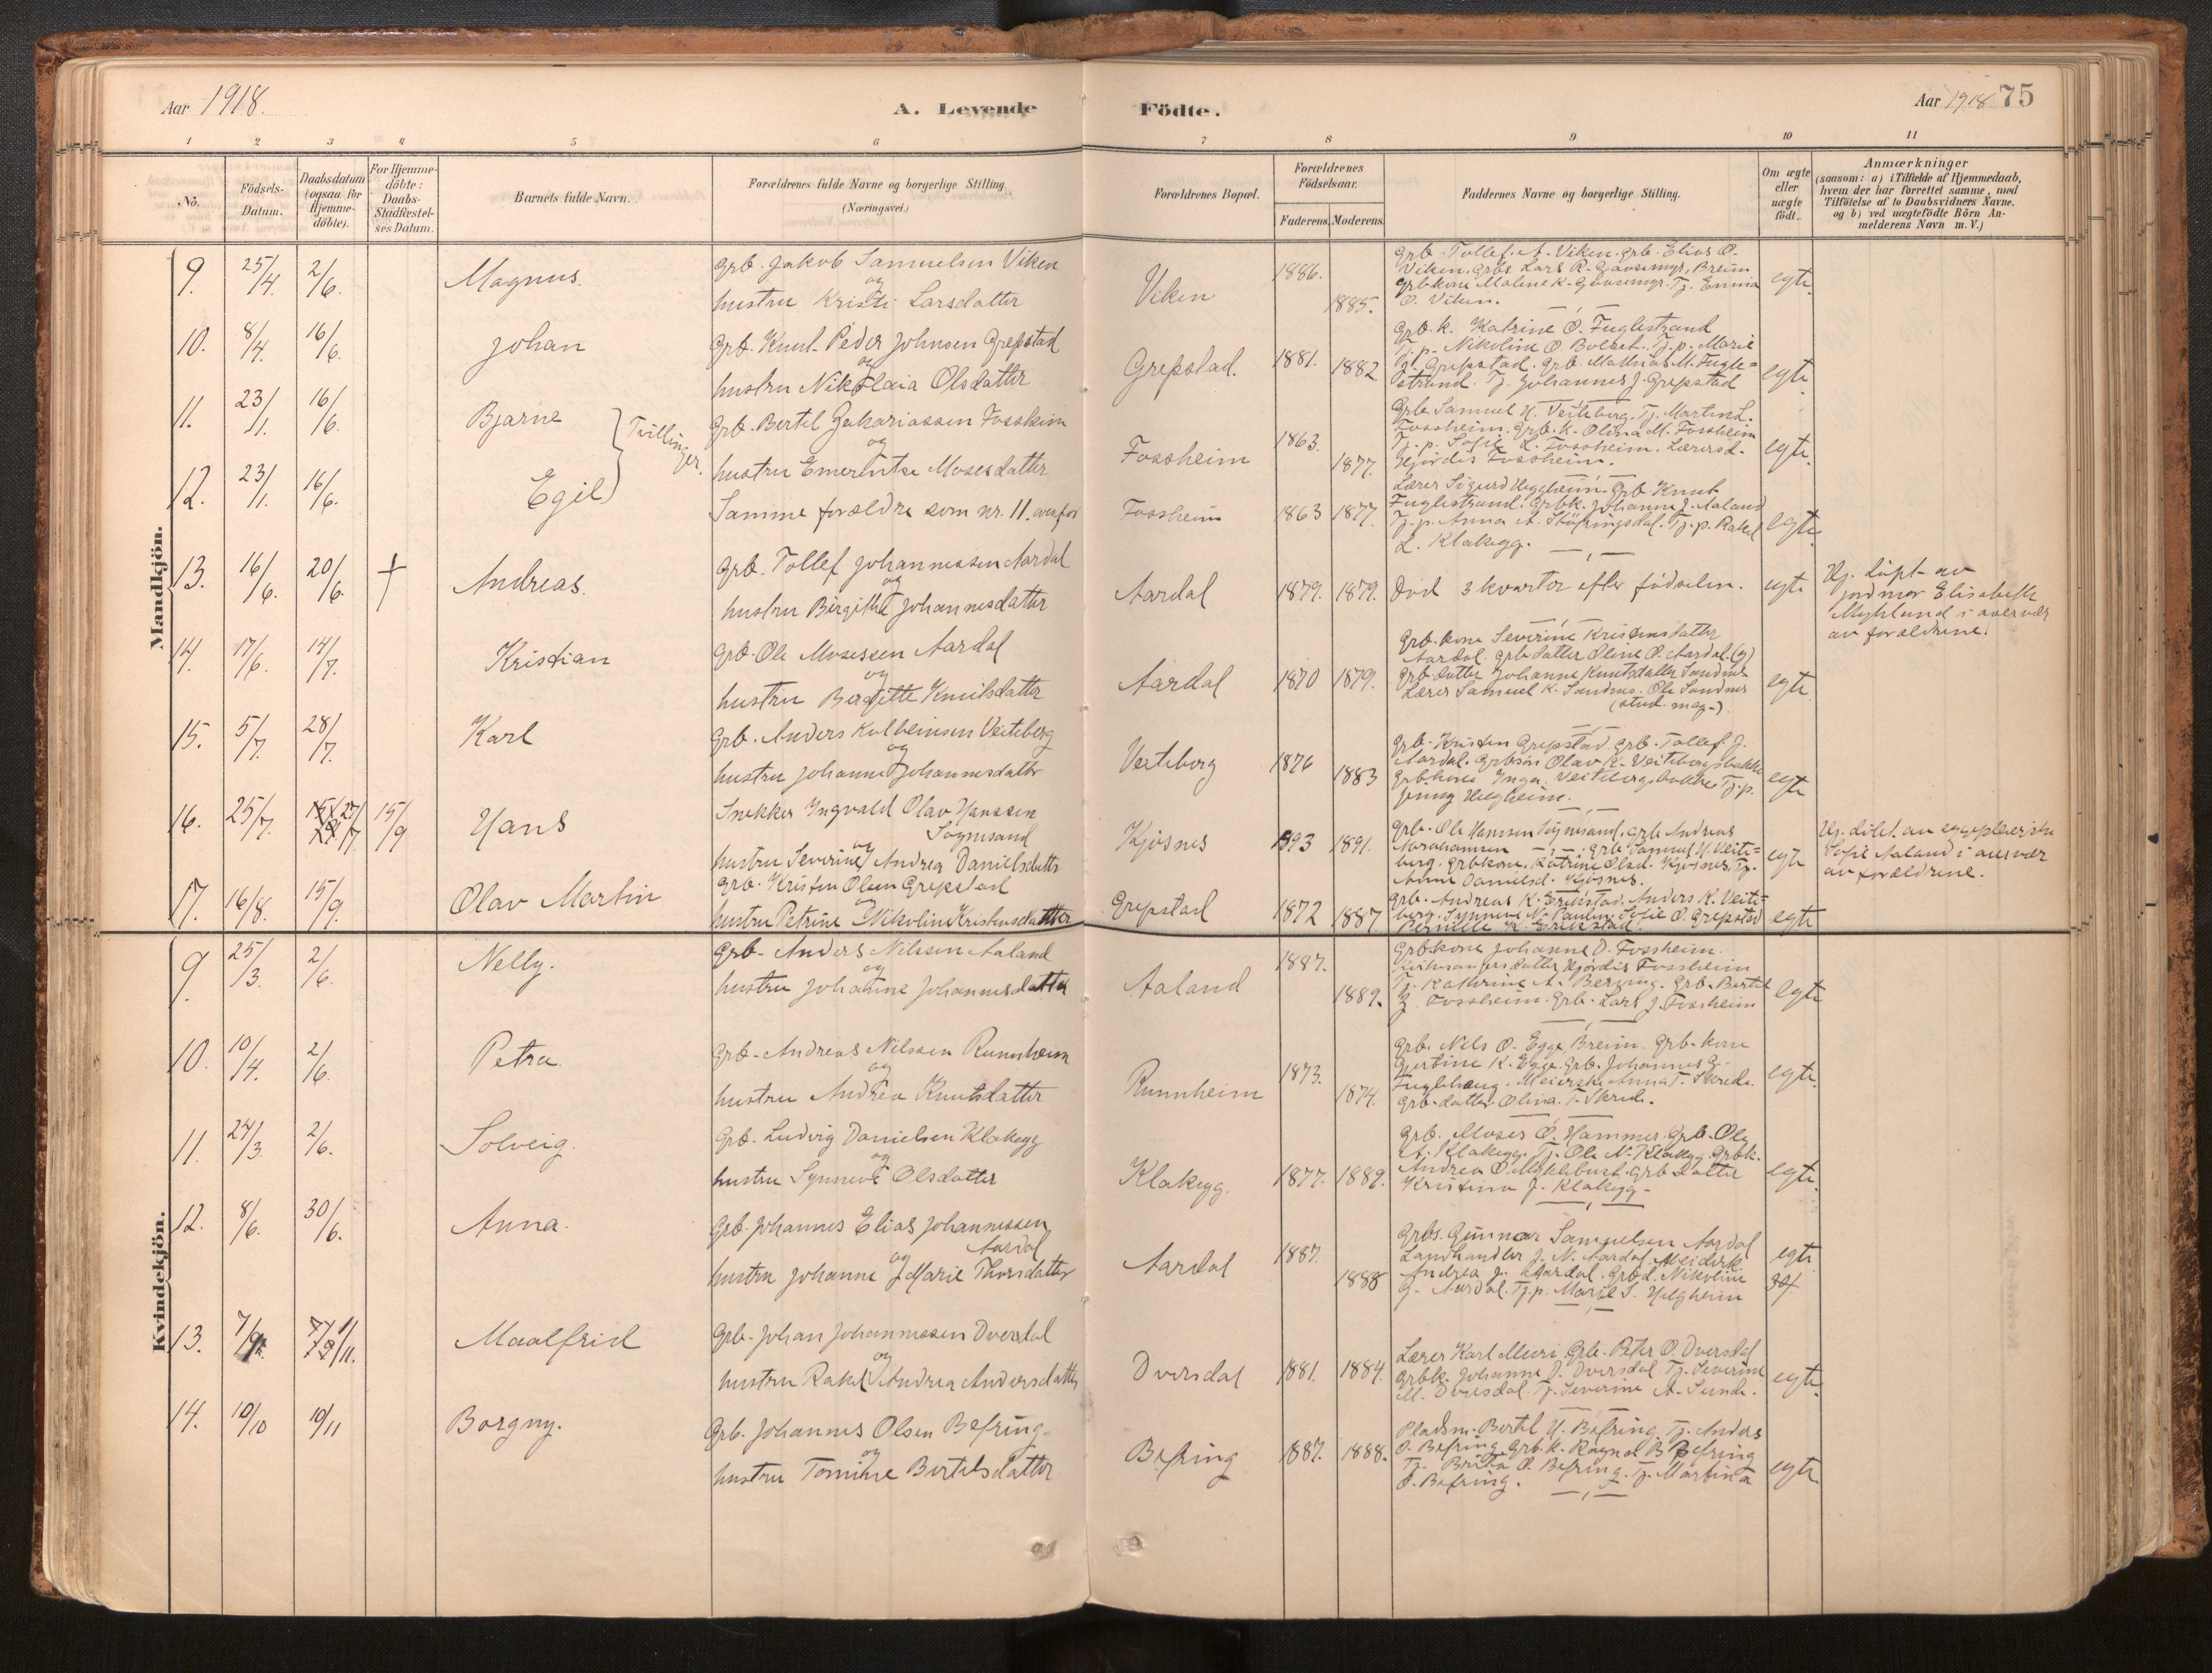 Aar 1918.
A. Levende Födte.
Aar 1918 75
1 2 3 4 5 6 7 8 9 10 11
No.
Födsels-Datum.
Daabsdatum (ogsaa for Hjemme-döbte).
For Hjemme-döbte: Daabs-Stadfæstel-ses Datum.
Barnets fulde Navn.
Forældrenes fulde Navne og borgerlige Stilling.
(Næringsvei.)
Forældrenes Bopæl.
Forældrenes Födselsaar.
Faderens. Moderens.
Faddernes Navne og borgerlige Stilling.
Om ægte eller uægte födt.
Anmærkninger
(saasom: a) i Tilfælde af Hjemmedaab,
hvem der har forrettet samme, med
Tilföielse af to Daabsvidners Navne.
og b) ved uægtefödte Börn An-
melderens Navn m. V.)
Mandkjön.
9. 25/4. 2/6. Magnus.
Grb. Jakob Samuelsen Viken
og
hustru Kristi Larsdatter
Viken 1886. 1885.
Grb. Tollef A. Viken. Grb. Elias O.
Viken. Grbs. Lars R. Gaasemyr, Breim
Grbkone Malene K. Gaasemyr. Tj. Emma
O. Viken.
egte
10. 8/4. 16/6. Johan
Grb. Knut Peder Johnsen Grepstad
og
hustru Nikolaia Olsdatter
Grepstad. 1881. 1882.
Grb.k. Katrine O. Fuglestrand
Tj.p. Nikoline O. Tj.p. Marie
Grepstad. Grb. Mathias M. Fugle=
strand. Tj. Johannes J. Grepstad
egte
11. 23/1. 16/6. Bjarne
Tvillinger.
Grb. Bertil Zakariassen Fossheim
og
hustru Emerentse Mosesdatter
Fossheim 1863. 1877.
Grb. Samuel H. Veiteberg. Tj. Martin L.
Fossheim. Grb.k. Olina M. Fossheim
Tj.p. Sofie L. Fossheim. Lærersd.
Hjördis Fossheim.
egte.
12. 23/1. 16/6. Egil
Samme forældre som nr. 11. ovenfor
Fossheim 1863 1877.
Lærer Sigurd Helgheim. Grb. Knut
Fuglestrand. Grbk. Johanne J. Aaland
Tj.p. Anna A. Stöfringsdal. Tj.p. Rakel
L. Klakegg.
egte
13. 16/6. 20/6. † Andreas.
Grb. Tollef Johannessen Aardal
og
hustru Birgithe Johannesdatter
Aardal 1879. 1879.
Död 3 kvarter efter födselen.
egte
Hj. döpt av
jordmor Elisabeth
Myklund i overvær
av forældrene.
14. 17/6. 14/7. Kristian
Grb. Ole Mosessen Aardal
og
hustru Bergitte Knutsdatter
Aardal 1870 1879.
Grb. kone Severine Kristensdatter
Aardal. Grb datter Oline O. Aardal. (g)
Grb datter Johanne Knutsdatter Sandnes
Lærer Samuel K. Sandnes. Ole Sandnes
(stud. mag.)
egte
15. 5/7. 28/7. Karl
Grb. Anders Kolbeinsen Veiteberg
og
hustru Johanne Johannesdatter
Veiteberg 1876 1883
Grb. Kristen Grepstad. Grb. Tollef J.
Aardal. Grbsön Olav K. Veitebergsbakke
Grbkone Inga Veitebergsbakke Tj.p.
Jenny Helgheim.
egte
16. 25/7. 27/7 15/9 Hans
Snekker Ingvald Olav Hanssen
Sögnesand
og
hustru Severine Andrea Danielsdatter
Kjösnes 1893 1891.
Grb. Ole Hanssen Sögnesand. Grb. Andreas
Abrahamsen Grb. Samuel H. Veite=
berg. Grbkone Katrine Olsd. Kjösnes. Tj.
Anne Danielsd. Kjösnes.
egte
Hj. döbt av sygepleierske
Sofie Aaland i overvær
av forældrene.
17. 16/8. 15/9. Olav Martin
Grb. Kristen Olsen Grepstad
og
hustru Petrine Nikoline Kristensdatter
Grepstad 1872 1887
Grb. Andreas K. Erikstad. Anders K. Veite=
berg. Synneve N. Pauline Sofie O. Grepstad
Pernille K. Erikstad.
egte
Kvindekjön.
9. 25/3. 2/6. Nelly.
Grb. Anders Nilssen Aaland
og
hustru Johanne Johannesdatter
Aaland 1887. 1889.
Grbkone Johanne D. Fossheim.
Kirkesangersdatter Hjördis Fossheim
Tj. Kathrine A. Berging. Grb. Bertel
Z. Fossheim. Grb. Lars J. Fossheim
egte
10. 10/4. 2/6. Petra
Grb. Andreas Nilssen Runnheim
og
hustru Andrea Knutsdatter
Runnheim 1873. 1874.
Grb. Nils O. Egge, Breim. Grb. kone
Gjertine K. Egge. Grb. Johannes G.
Fuglehaug. Meierske Anna T. Skrede.
Grb. datter Olina T. Skrede.
egte.
11. 24/3. 2/6. Solveig.
Grb. Ludvig Danielsen Klakegg
og
hustru Synneve Olsdatter
Klakegg. 1877. 1889.
Grb. Moses O. Hammer. Grb. Ole
A. Klakegg. Tj. Ole N. Klakegg. Grbk.
Andrea O. Myklebust. Grb datter
Kristine J. Klakegg.
egte.
12. 8/6. 30/6. Anna.
Grb. Johannes Elias Johannessen
Aardal
og
hustru Johanne Marie Thorsdatter
Aardal 1887. 1888
Grbs. Gunnar Samuelsen Aardal
Landhandler J. N. Aardal. Meiersk.
Andrea J. Aardal. Grbd. Nikoline
G. Aardal. Tj.p. Marie S. Helgheim
egte
13. Maalfrid
Grb. Johan Johannessen Dversdal
og
hustru Rakel Andrea Andersdatter
Dversdal 1881. 1884.
Lærer Karl Muri. Grb. Peter O. Dversdal
Grbk. Johanne J. Dversdal Tj. Severine
M. Dversdal. Tj. Severine A. Sunde.
egte.
14. 10/10 10/11 Borgny.
Grb. Johannes Olsen Befring.
og
hustru Tomine Bertelsdatter
Befring 1887. 1888.
Pladsm. Bertel H. Befring. Tj. Anders
O. Befring. Grb.k. Ragna B. Befring
Tj. Brita O. Befring. Tj. Martina
O. Befring.
egte